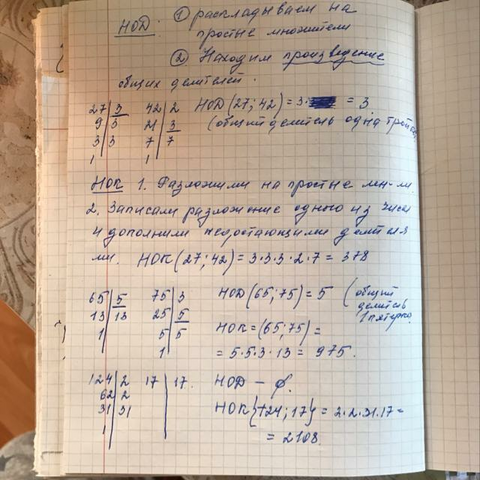 НОД: ① раскладываем на
простые множители
② Находим произведение
общих делителей.
27 | 3 42 | 2 НОД (27; 42) = 3· = 3
9 | 3 21 | 3 (общий делитель одна тройка
3 | 3 7 | 7
1 1
НОК 1. Разложили на простые мн-ли
2. Записали разложение одного из чисел
и дополним недостающими делителя
ми. НОК (27; 42) = 3·3·3·2·7 = 378
65 | 5 75 | 3 НОД (65; 75) = 5 (общий
13 | 13 25 | 5 делитель
1 5 | 5 НОК = (65; 75) = 1 пятерка.
1 = 5·5·3·13 = 975.
124 | 2 17 | 17 НОД – ∅.
62 | 2
31 | 31 НОК (124; 17) = 2·2·31·17 =
1 = 2108